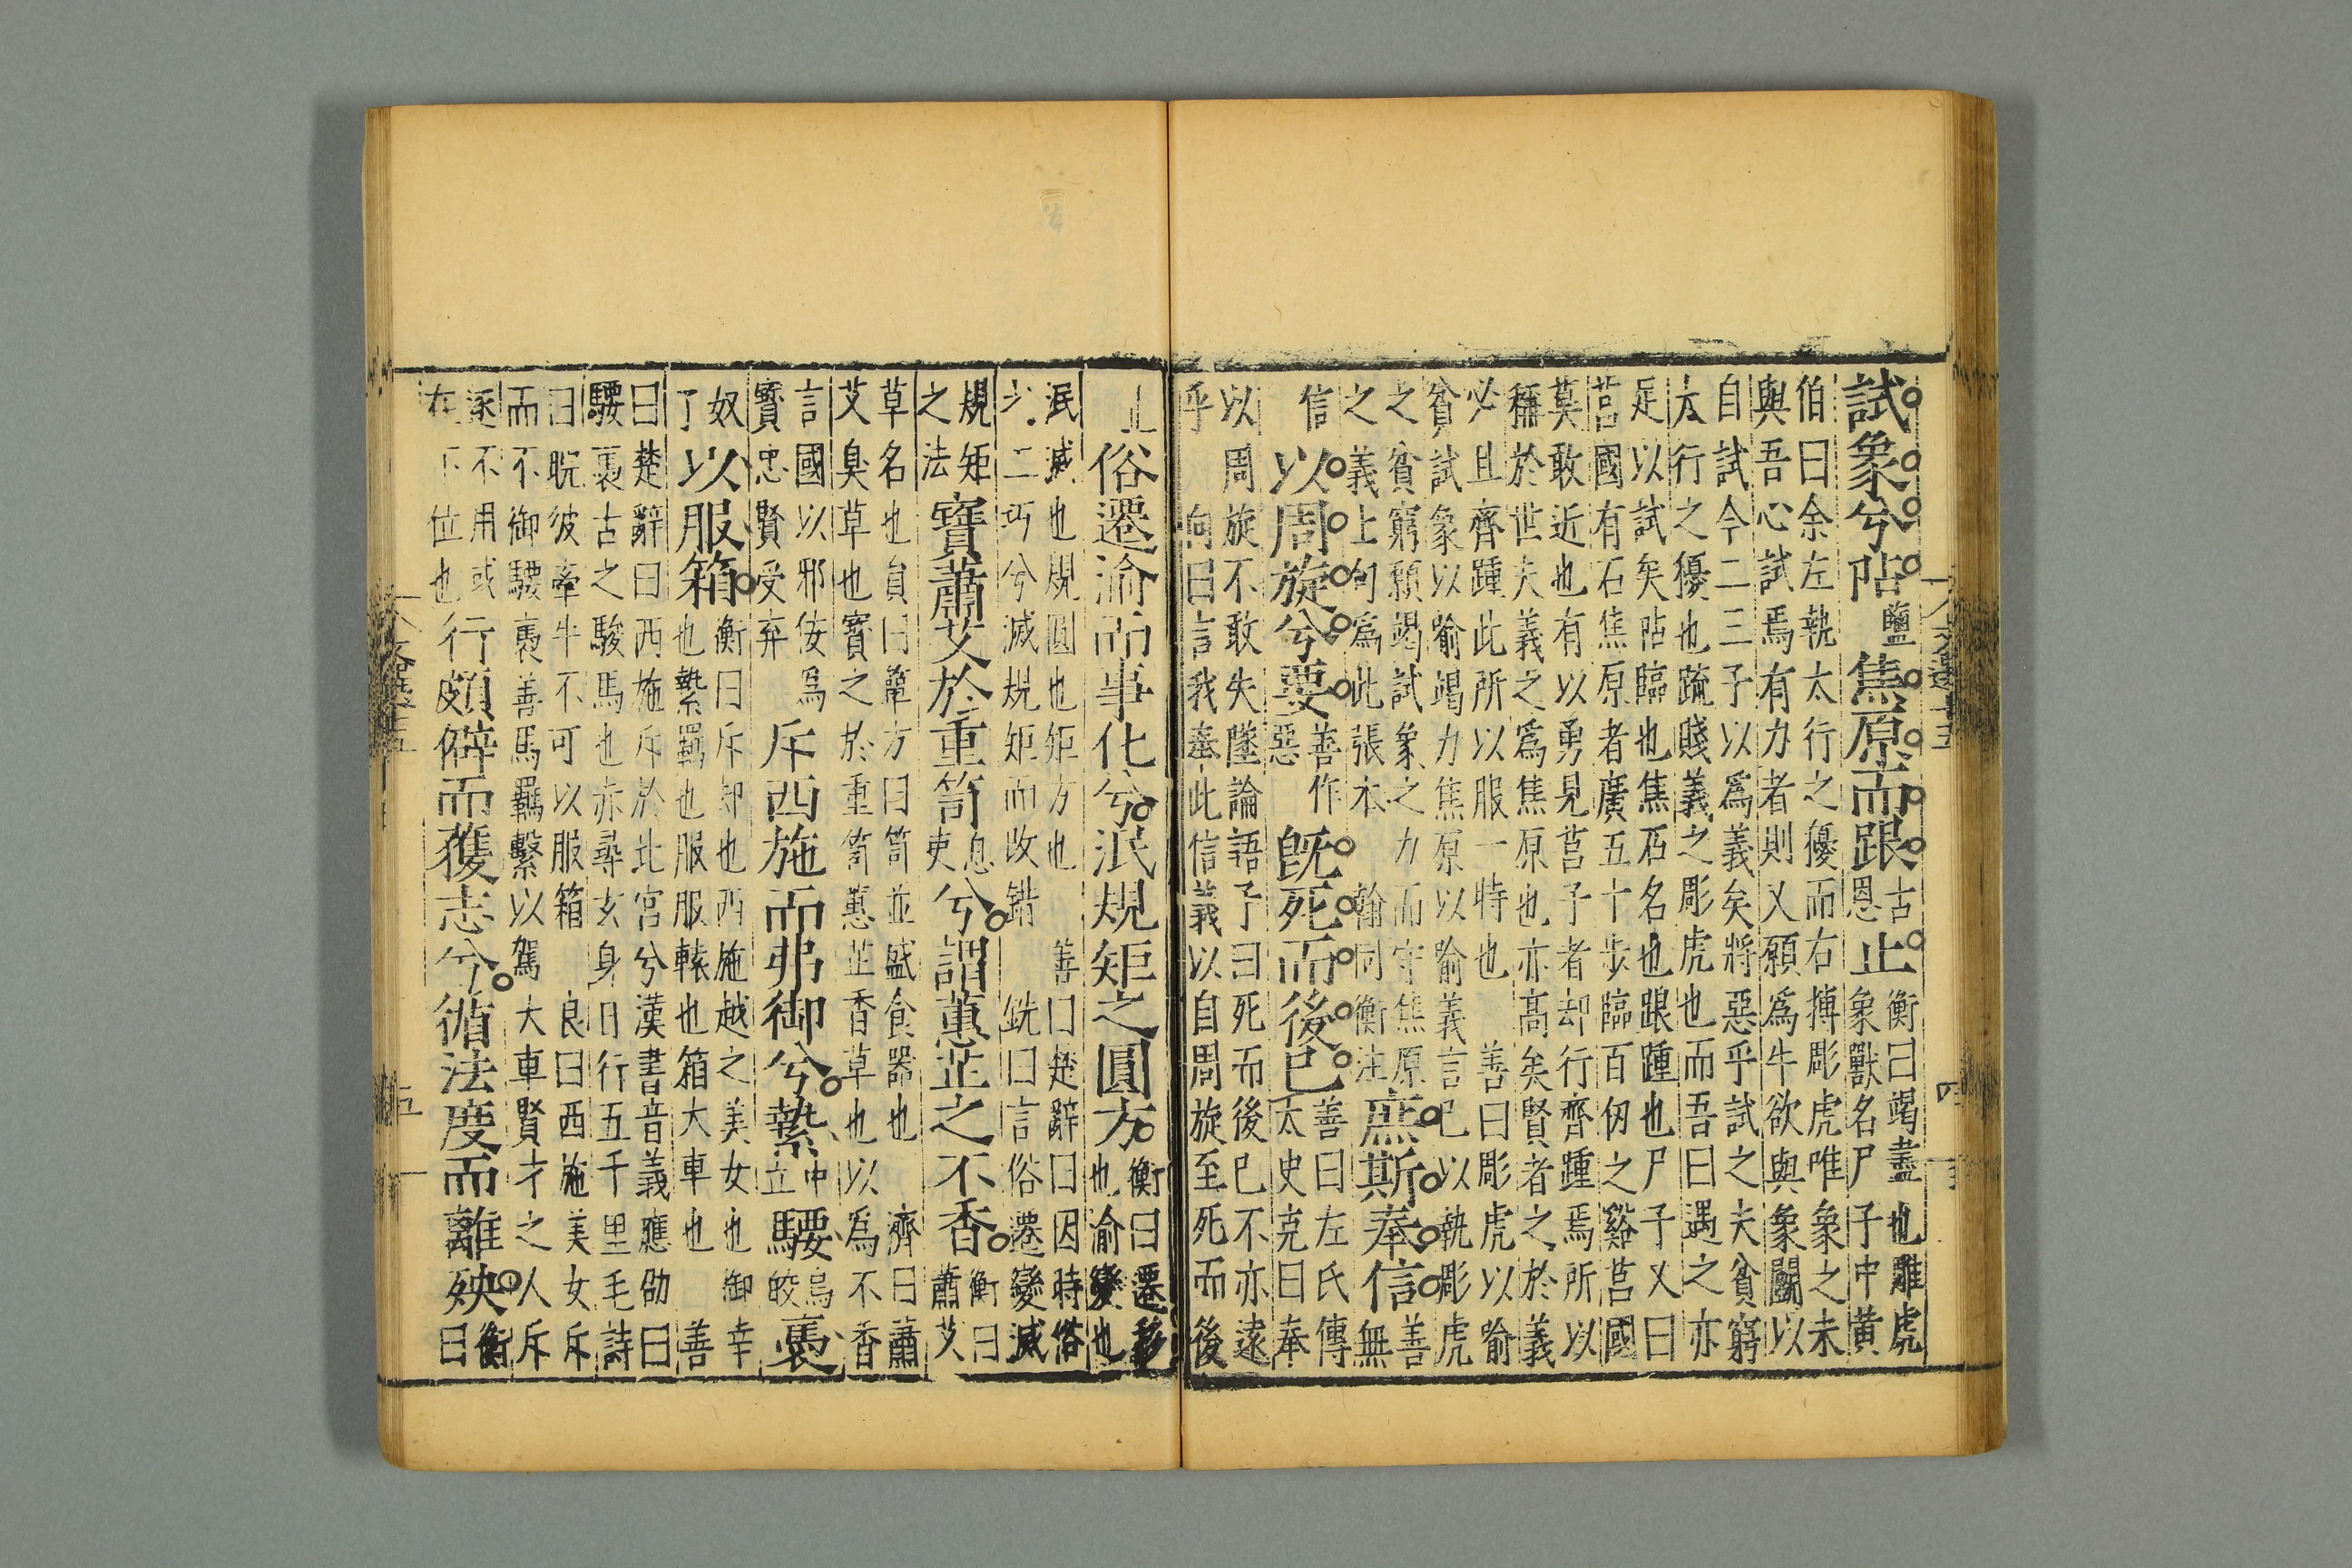 試象兮阽鹽焦原而跟古恩止衡曰竭盡也雕虎
象獸名尸子中黃
伯曰余左執太行之獶而右搏彫虎唯象之未
與吾心試焉有力者則又願爲牛欲與象鬬以
自試今二三子以爲義矣將惡乎試之夫貧窮
太行之獶也疏賤義之彫虎也而吾曰遇之亦
足以試矣阽臨也焦石名也跟踵也尸子又曰
莒國有石焦原者廣五十步臨百仞之谿莒國
莫敢近也有以勇見莒子者却行齊踵焉所以
稱於世夫義之爲焦原也亦高矣賢者之於義
必且齊踵此所以服一時也 善曰彫虎以喻
貧試象以喻竭力焦原以喻義言已以執彫虎
之貧窮願竭試象之力而守焦原
之義上句爲此張本 翰同衡注
庶斯奉信善無
信以周旋兮要善作惡既死而後已善曰左氏傳
太史克曰奉
以周旋不敢失墜論語子曰死而後已不亦遠
乎 向曰言我奉此信義以自周旋至死而後
俗遷渝而事化兮泯規矩之圓方衡曰遷移
也渝變也
泯滅也規圓也矩方也 善曰楚辭曰因時俗
工巧兮滅規矩而改錯 銑曰言俗遷變滅
規矩
之法
寶蕭艾於重笥息吏兮謂蕙芷之不香衡曰
蕭艾
草名也員曰簞方曰笥並盛食器也 濟曰蕭
艾臭草也寶之於重笥蕙芷香草也以爲不香
言國以邪佞爲
寶忠賢受弃
斥西施而弗御兮縶中立騕烏皎褭
奴了以服箱衡曰斥却也西施越之美女也御幸
也縶羈也服服轅也箱大車也 善
曰楚辭曰西施斥於北宮兮漢書音義應劭曰
騕褭古之駿馬也亦尋玄身日行五千里毛詩
曰睆彼牽牛不可以服箱 良曰西施美女斥
而不御騕褭善馬羈繫以駕大車賢才之人斥
逐不用或
在下位也
行頗僻而獲志兮循法度而離殃衡
曰